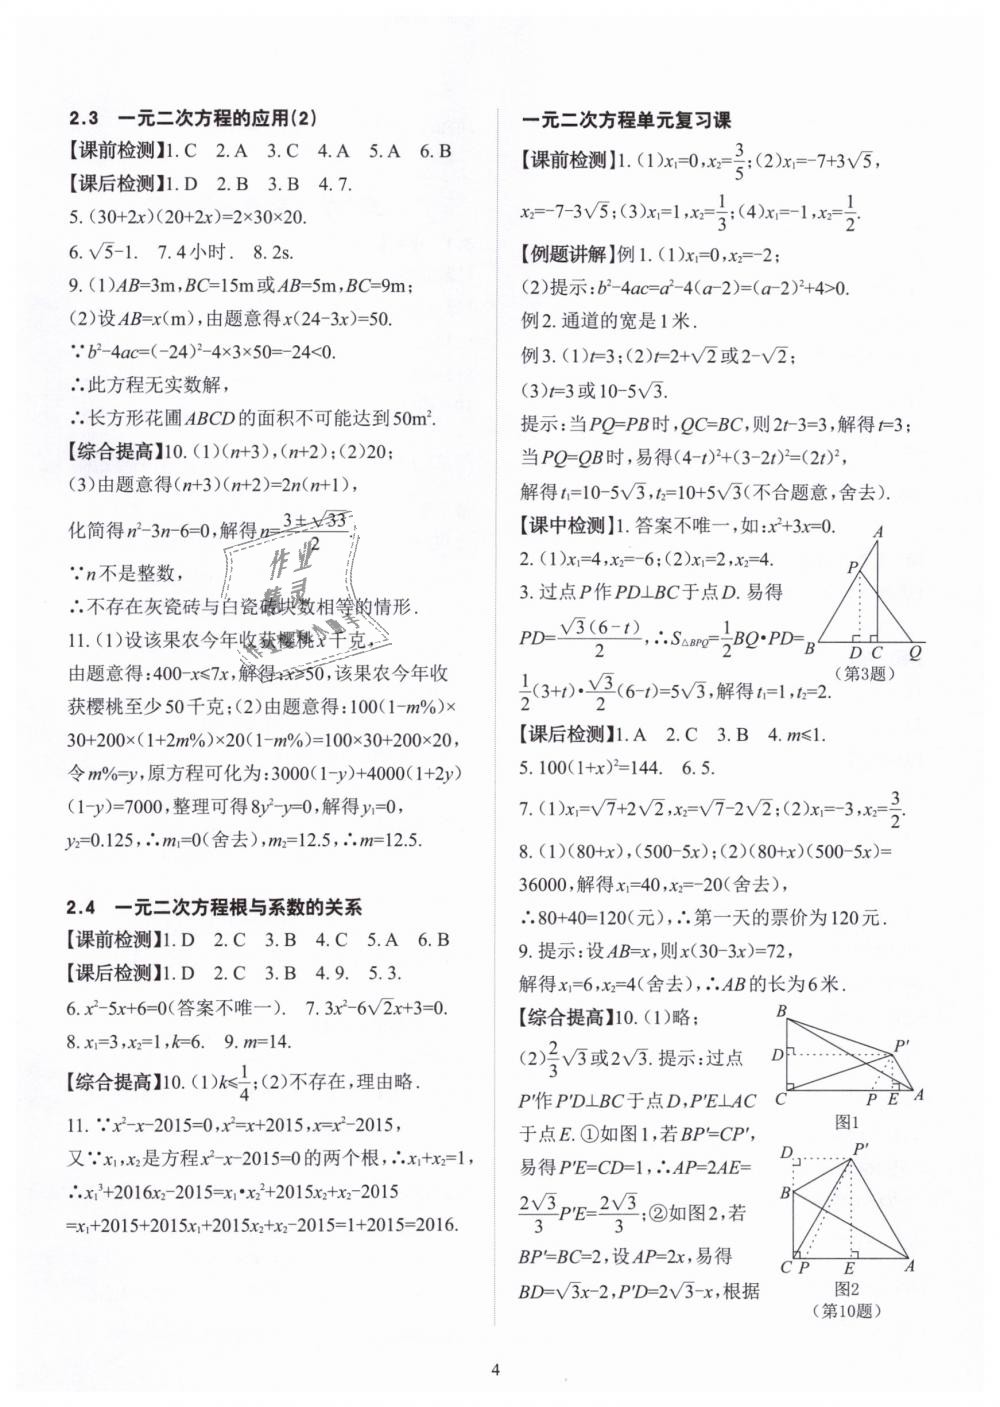 2.3 一元二次方程的应用(2)
【课前检测】1. C 2. A 3. C 4. A 5. A 6. B
【课后检测】1. D 2. B 3. B 4. 7.
5. (30+2x)(20+2x)=2×30×20.
6. √5-1. 7. 4小时. 8. 2s.
9. (1)AB=3m,BC=15m或AB=5m,BC=9m;
(2)设AB=x(m),由题意得x(24-3x)=50.
∵b²-4ac=(-24)²-4×3×50=-24<0.
∴此方程无实数解,
∴长方形花圃ABCD的面积不可能达到50m².
【综合提高】10. (1)(n+3),(n+2);(2)20;
(3)由题意得(n+3)(n+2)=2n(n+1),
化简得n²-3n-6=0,解得n=(3±√33)/2.
∵n不是整数,
∴不存在灰瓷砖与白瓷砖块数相等的情形.
11. (1)设该果农今年收获樱桃x千克,
由题意得:400-x≤7x,解得:x≥50,该果农今年收
获樱桃至少50千克;(2)由题意得:100(1-m%)×
30+200×(1+2m%)×20(1-m%)=100×30+200×20,
令m%=y,原方程可化为:3000(1-y)+4000(1+2y)
(1-y)=7000,整理可得8y²-y=0,解得y₁=0,
y₂=0.125,∴m₁=0(舍去),m₂=12.5,∴m=12.5.
2.4 一元二次方程根与系数的关系
【课前检测】1. D 2. C 3. B 4. C 5. A 6. B
【课后检测】1. D 2. C 3. B 4. 9. 5. 3.
6. x²-5x+6=0(答案不唯一). 7. 3x²-6√2x+3=0.
8. x₁=3,x₂=1,k=6. 9. m=14.
【综合提高】10. (1)k≤1/4;(2)不存在,理由略.
11. ∵x²-x-2015=0,x²=x+2015,x=x²-2015,
又∵x₁,x₂是方程x²-x-2015=0的两个根,∴x₁+x₂=1,
∴x₁³+2016x₂-2015=x₁•x₂²+2015x₂+x₂-2015
=x₁+2015+2015x₁+2015x₂+x₂-2015=1+2015=2016.
一元二次方程单元复习课
【课前检测】1. (1)x₁=0,x₂=3/5;(2)x₁=-7+3√5,
x₂=-7-3√5;(3)x₁=1,x₂=1/3;(4)x₁=-1,x₂=1/2.
【例题讲解】例1. (1)x₁=0,x₂=-2;
(2)提示:b²-4ac=a²-4(a-2)=(a-2)²+4>0.
例2. 通道的宽是1米.
例3. (1)t=3;(2)t=2+√2或2-√2;
(3)t=3或10-5√3.
提示:当PQ=PB时,QC=BC,则2t-3=3,解得t=3;
当PQ=QB时,易得(4-t)²+(3-2t)²=(2t)²,
解得t₁=10-5√3,t₂=10+5√3(不合题意,舍去).
【课中检测】1. 答案不唯一,如:x²+3x=0.
2. (1)x₁=4,x₂=-6;(2)x₁=2,x₂=4.
3. 过点P作PD⊥BC于点D. 易得
PD=√3(6-t)/2,∴S△BPQ=1/2BQ•PD=
1/2(3+t)•√3/2(6-t)=5√3,解得t₁=1,t₂=2.
A
P
B D C Q
(第3题)
【课后检测】1. A 2. C 3. B 4. m≤1.
5. 100(1+x)²=144. 6. 5.
7. (1)x₁=√7+2√2,x₂=√7-2√2;(2)x₁=-3,x₂=3/2.
8. (1)(80+x),(500-5x);(2)(80+x)(500-5x)=
36000,解得x₁=40,x₂=-20(舍去),
∴80+40=120(元),∴第一天的票价为120元.
9. 提示:设AB=x,则x(30-3x)=72,
解得x₁=6,x₂=4(舍去),∴AB的长为6米.
【综合提高】10. (1)略;
(2)2/3√3或2√3. 提示:过点
P′作P′D⊥BC于点D,P′E⊥AC
于点E. ①如图1,若BP′=CP′,
易得P′E=CD=1,∴AP=2AE=
2√3/3P′E=2√3/3;②如图2,若
BP′=BC=2,设AP=2x,易得
BD=√3x-2,P′D=2√3-x,根据
B
D P′
C P E A
图1
D P′
B
C P E A
图2
(第10题)
4
作业
精灵